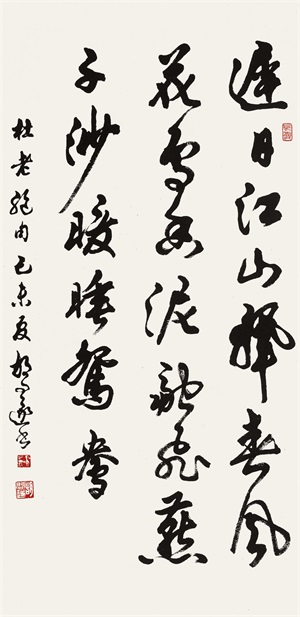 遲日江山麗春風
花草香泥融飛燕
子沙暖睡鴛鴦
杜老絕句己未夏胡問遂書